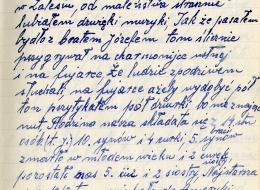 w Zalesiu, od maleństwa strasznie
lubiałem dźwięki muzyki, Jak że pasałem
bydło z bratem Józefem tam ślicznie
przygrywał na charmonijce ustnej
i na fujarce że ludzie z podziwem
słuchali, na fujarce ażeby wydobyć pół
ton porzykałem pół dziurki bo nie znając
nut, Rodzina nasza składała się z 14 stu
osób (t. j.) 10, synów i 4 curki 5, synów
zmarło w młodem wieku i 2 curki
pozostało nas 5, iu i 2 siostry Najstarsza